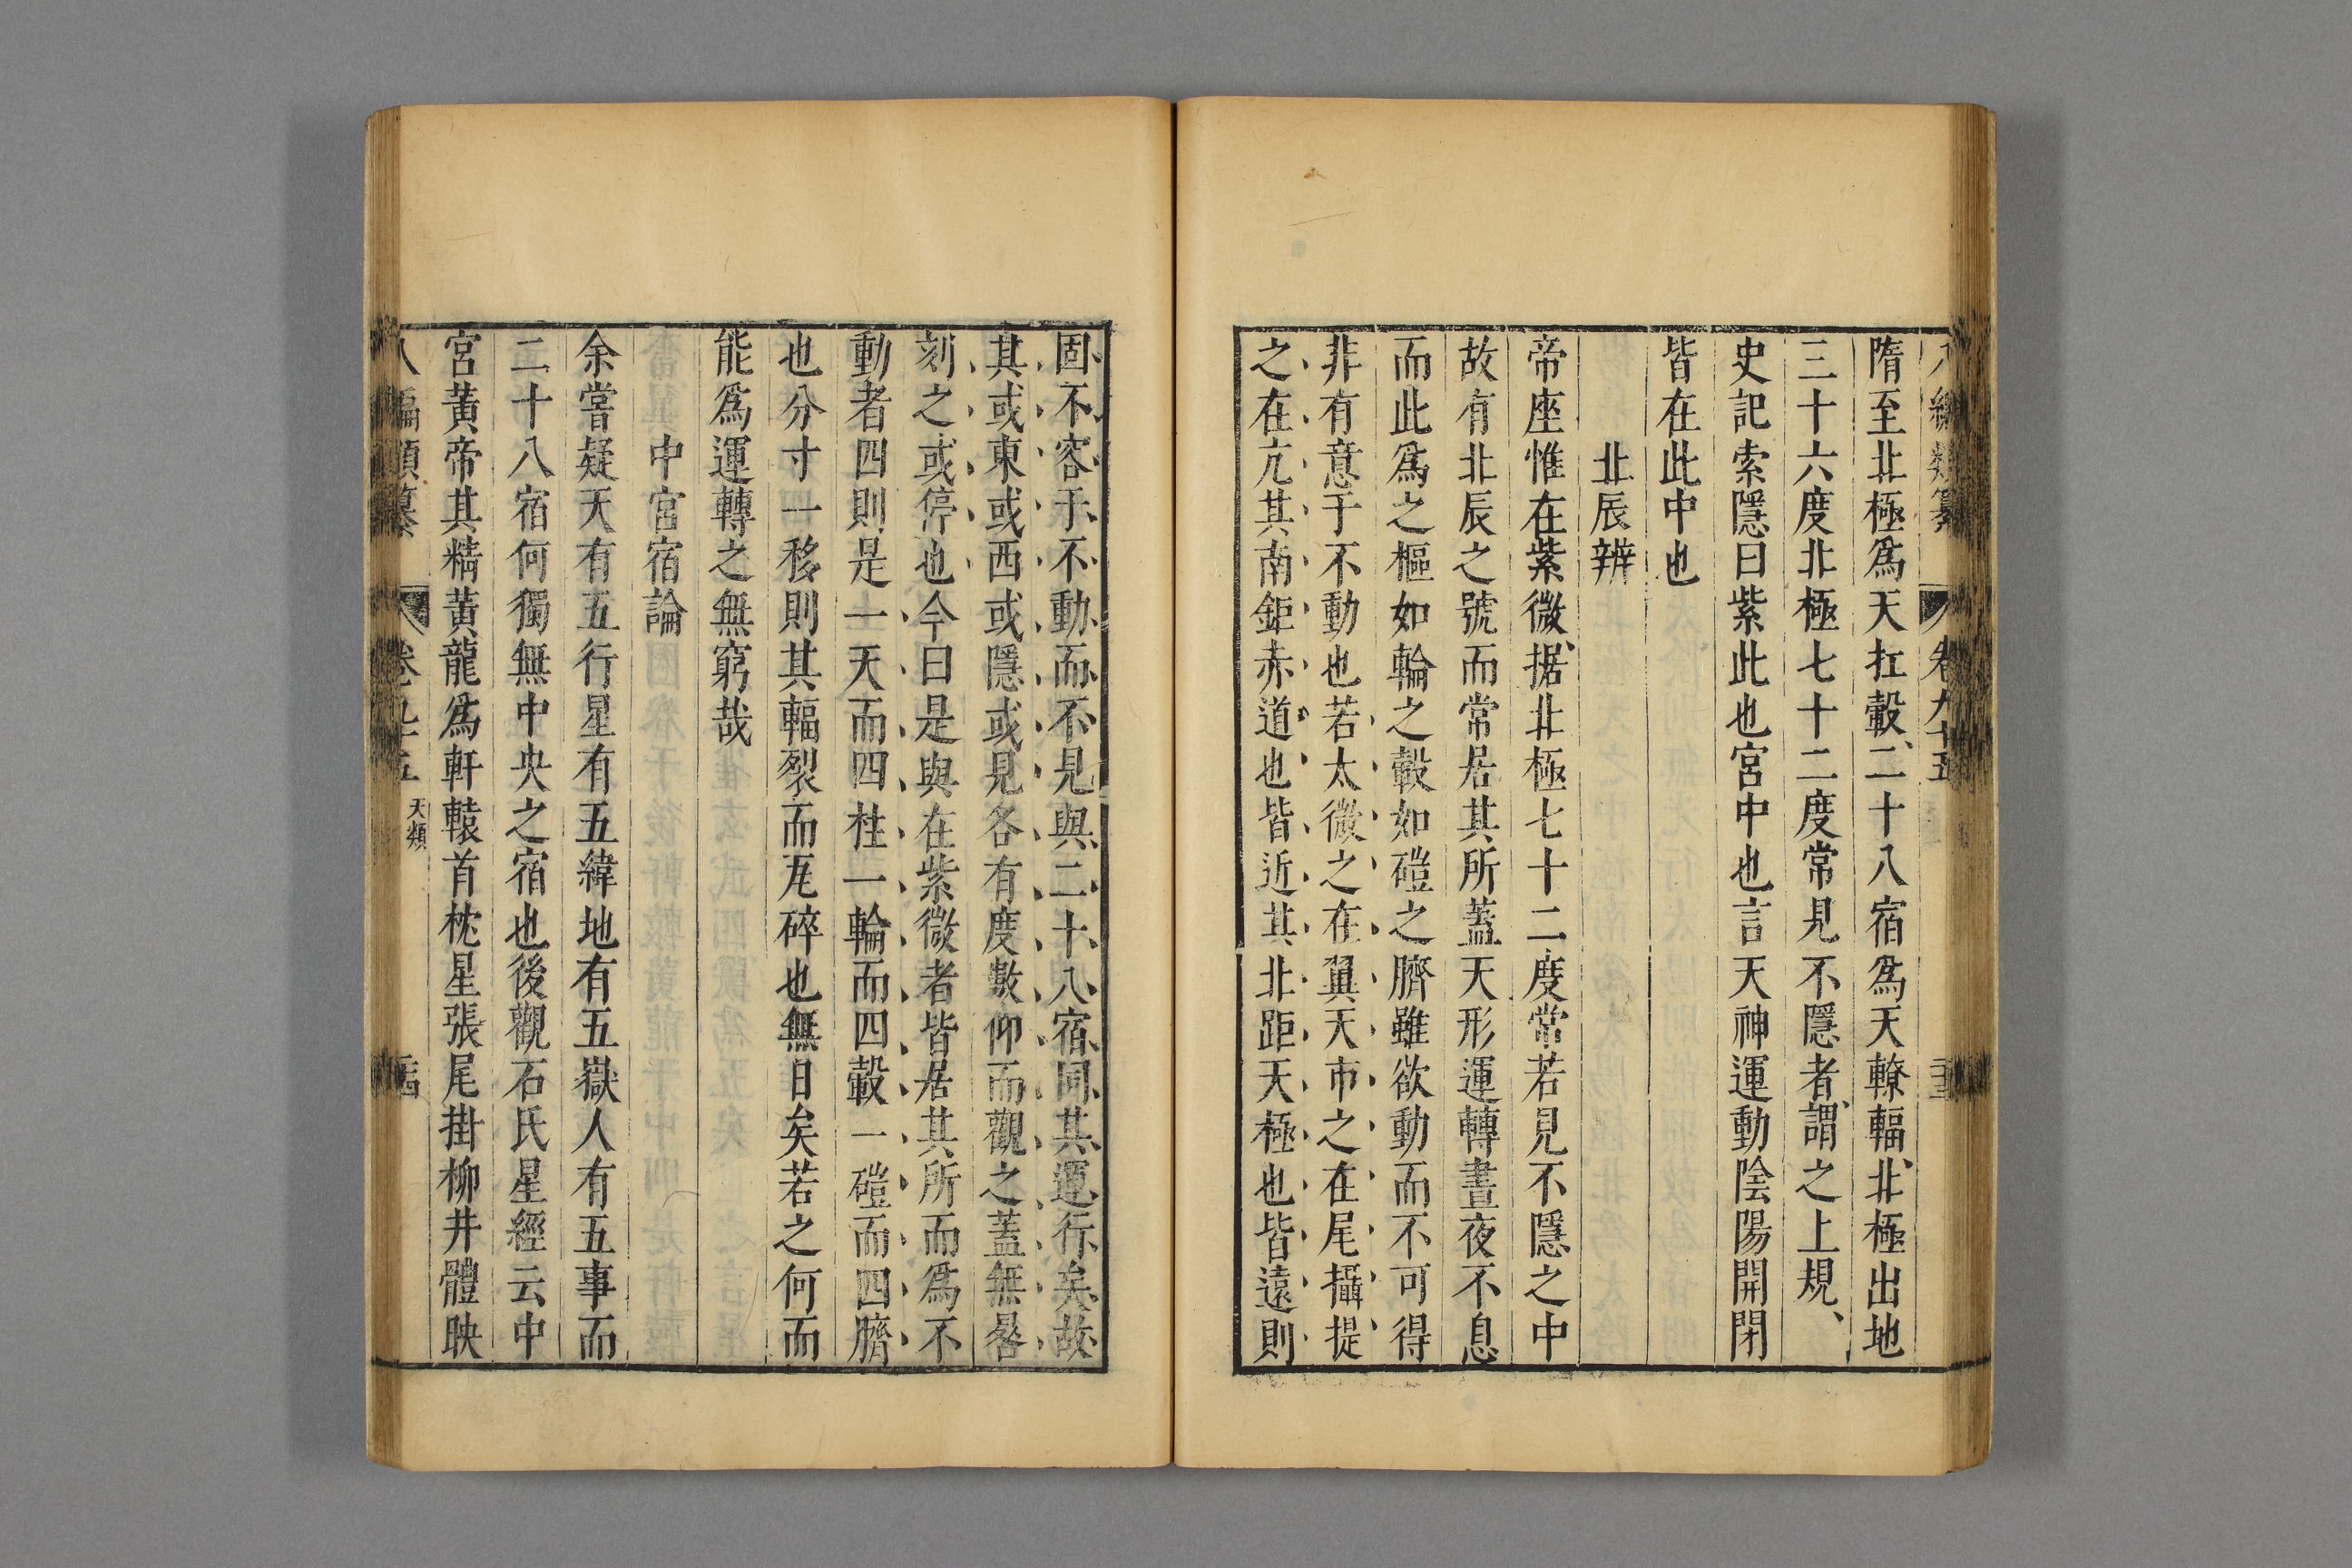 八編類纂 卷九十五
隋至北極爲天扛轂二十八宿爲天轑輻北極出地
三十六度北極七十二度常見不隱者謂之上規
史記索隱曰紫此也宮中也言天神運動陰陽開閉
皆在此中也
北辰辨
帝座惟在紫微据北極七十二度常若見不隱之中
故有北辰之號而常居其所蓋天形運轉晝夜不息
而此爲之樞如輪之轂如磑之臍雖欲動而不可得
非有意于不動也若太微之在翼天市之在尾攝提
之在亢其南鉅赤道也皆近其北距天極也皆遠則
固不容于不動而不見與二十八宿同其運行矣故
其或東或西或隱或見各有度數仰而觀之蓋無晷
刻之或停也今曰是與在紫微者皆居其所而爲不
動者四則是一天而四柱一輪而四轂一磑而四臍
也分寸一移則其輻裂而瓦碎也無日矣若之何而
能爲運轉之無窮哉
中宮宿論
余嘗疑天有五行星有五緯地有五嶽人有五事而
二十八宿何獨無中央之宿也後觀石氏星經云中
宮黃帝其精黃龍爲軒轅首枕星張尾掛柳井體映
八編類纂 卷九十五 天類